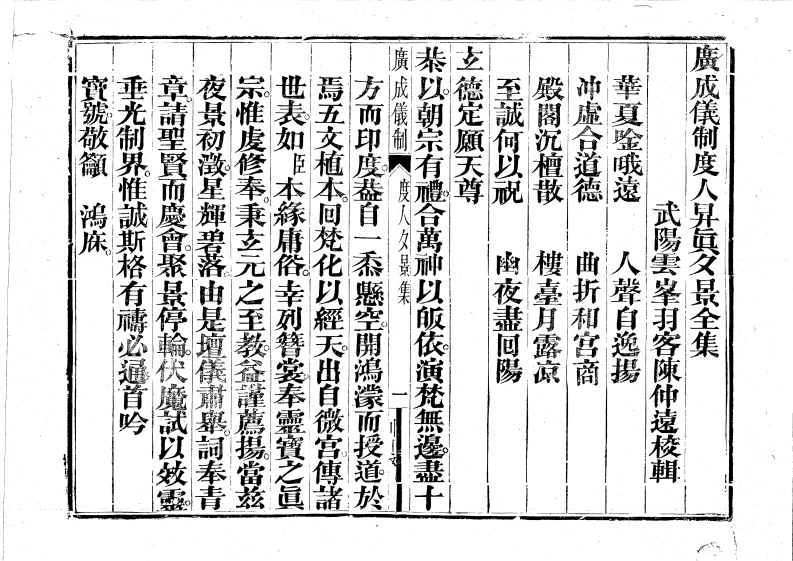 廣成儀制度人昇眞夕景全集
武陽雲峯羽客陳仲遠校輯
華夏唫哦遠　人聲自逸揚
冲虛合道德　曲折和宮商
殿閣沉檀散　樓臺月露凉
至誠何以祝　幽夜盡回陽
玄德定願天尊
恭以朝宗有禮。合萬神以皈依。演梵無邊。盡十
廣成儀制　度人夕景集　一
方而印度。葢自一炁懸空。開鴻濛而授道。於
焉五文植本。回梵化以經天。出自微宮。傳諸
世表。如臣本緣庸俗。幸列簪裳。奉靈寶之眞
宗。惟虔修奉。秉玄元之至教。益謹薦揚。當兹
夜景初澂。星輝碧落。由是壇儀肅舉。詞奉青
章。請聖賢而慶會。聚景停輪。伏魔試以效靈。
垂光制界。惟誠斯格。有禱必通。首吟
寶號。敬籲　鴻庥。